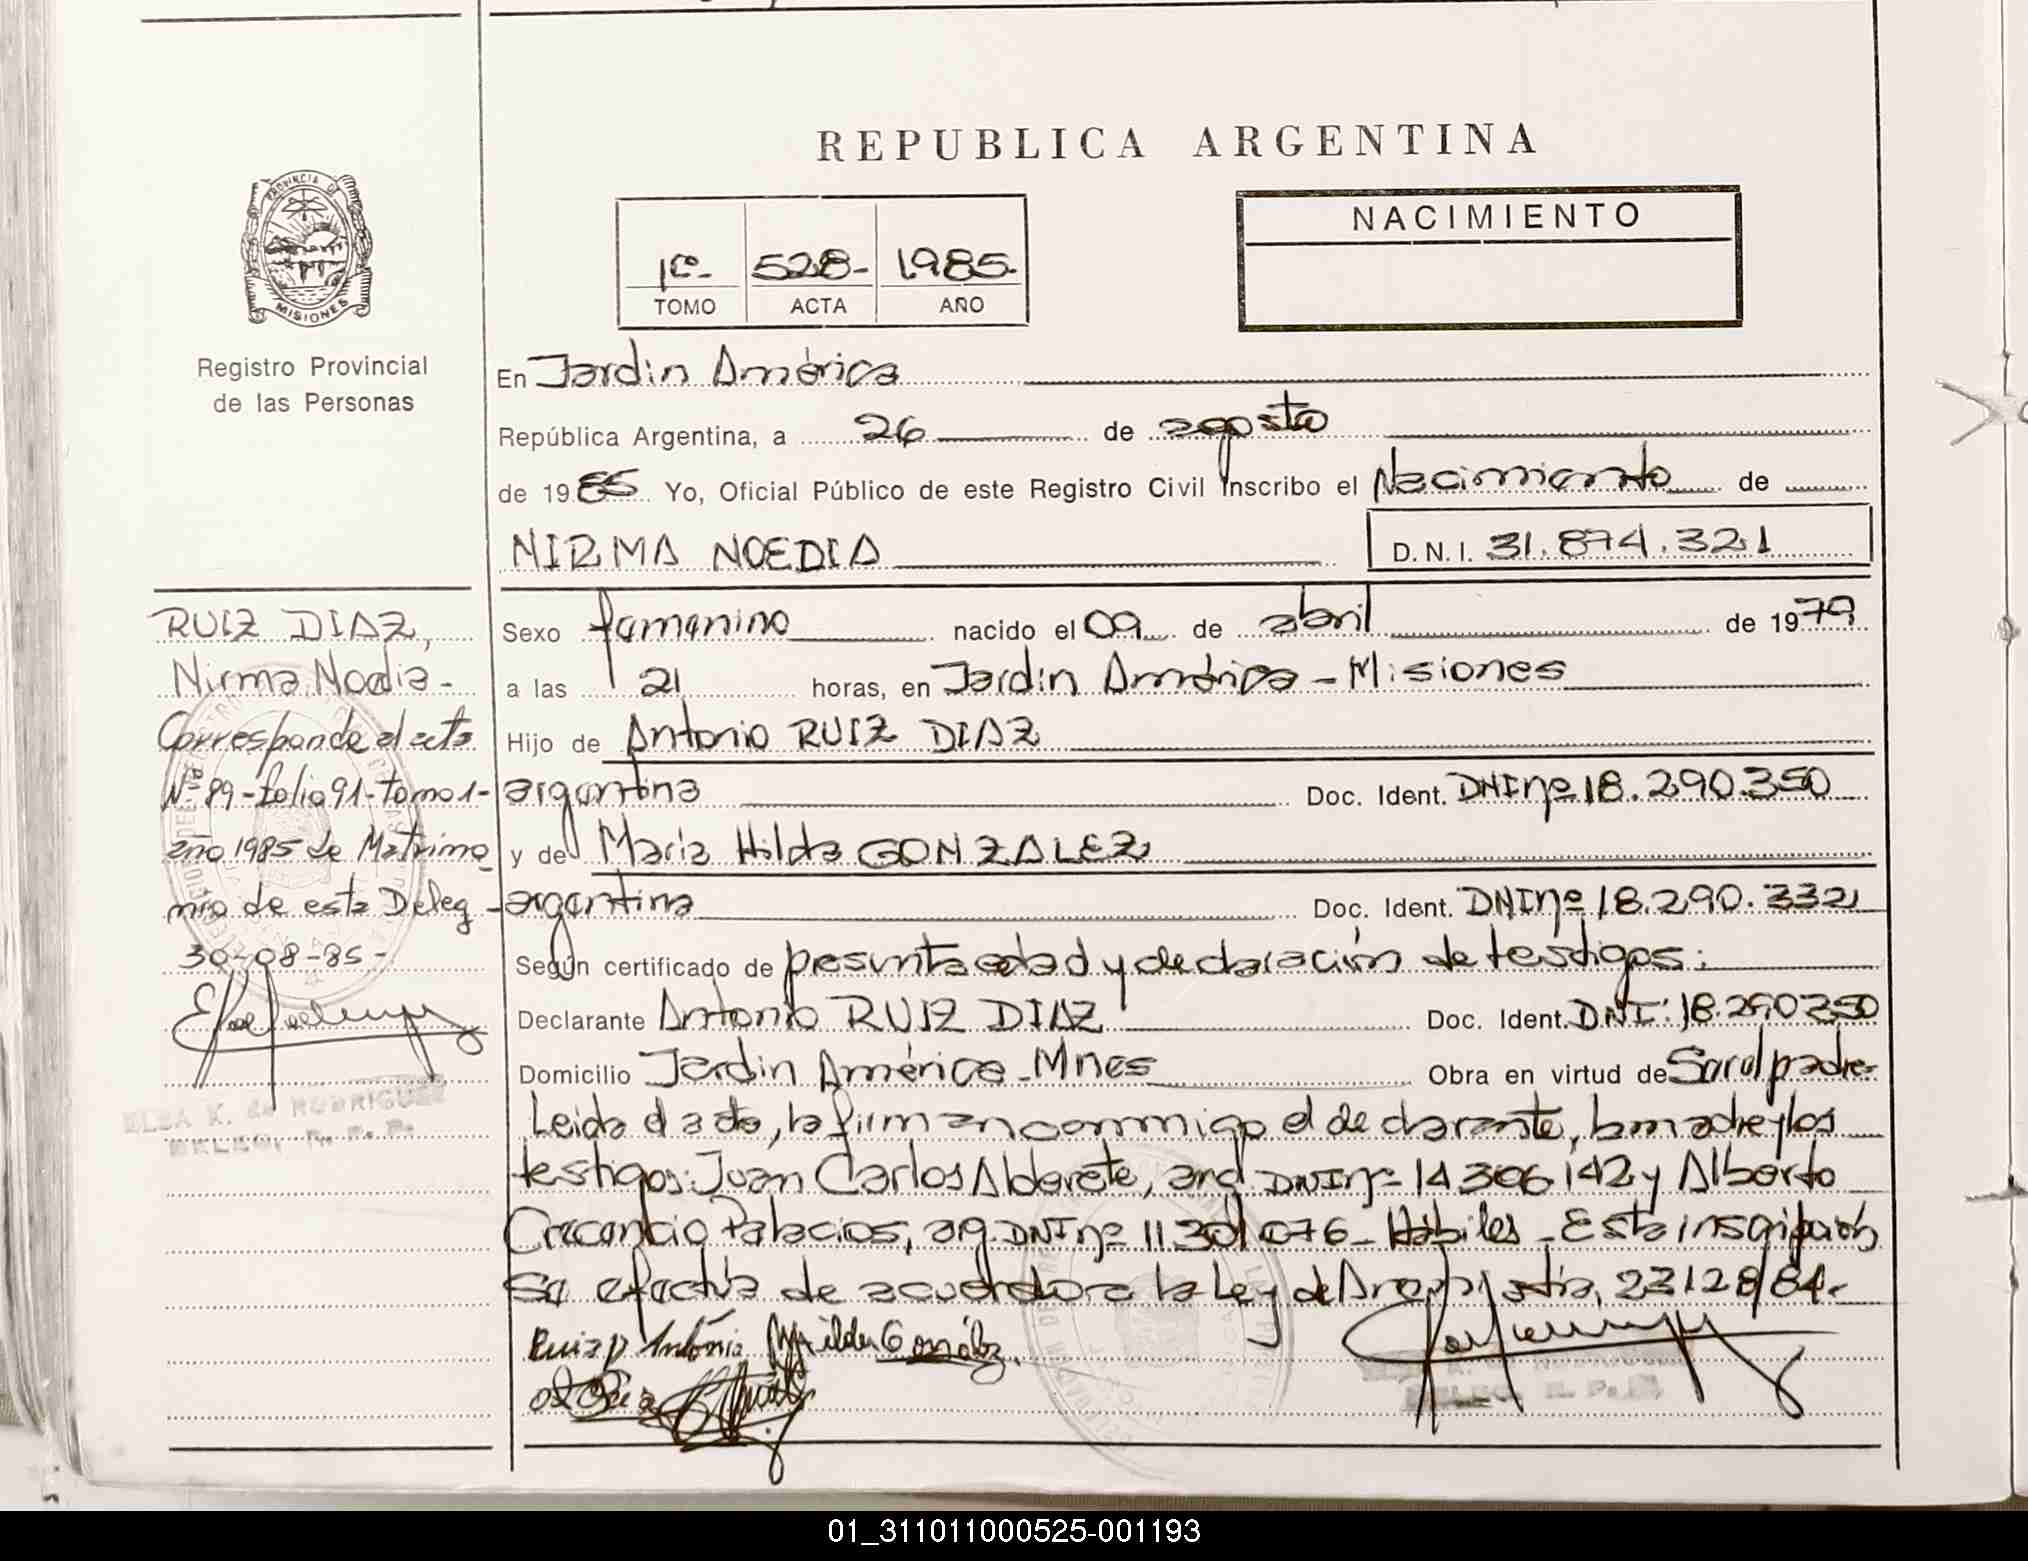 REPUBLICA ARGENTINA
PROVINCIA DE
MISIONES
Registro Provincial
de las Personas
1º- 528- 1985-
TOMO ACTA AÑO
NACIMIENTO
En Jardin América
República Argentina, a 26 de agosto
de 1985 Yo, Oficial Público de este Registro Civil Inscribo el Nacimiento de
NIRMA NOEDIA
D.N.I. 31.874.321
RUIZ DIAZ,
Nirma Noedia-
Corresponde al acta
Nº 89-folio 91-Tomo 1-
año 1985 de Matrimo
nio de esta Deleg-
30-08-85-
ELBA K. de RODRIGUEZ
DELEG. R. P. P.
Sexo femenino nacido el 09 de abril de 1979
a las 21 horas, en Jardin América - Misiones
Hijo de Antonio RUIZ DIAZ
argentina Doc. Ident. DNI nº 18.290.350
y de Maria Hilda GONZALEZ
argentina Doc. Ident. DNI nº 18.290.332
Según certificado de presunta edad y declaración de testigos:
Declarante Antonio RUIZ DIAZ Doc. Ident. DNI: 18.290350
Domicilio Jardin América - Mnes Obra en virtud de Ser el padre
Leida el acta, la firman conmigo el declarante, la madre y los
testigos: Juan Carlos Alderete, arg DNI nº 14306142 y Alberto
Crecencio Palacios, arg. DNI nº 11301076 - Hábiles - Esta inscripción
se efectúa de acuerdo a la Ley de Amnistia, 23128/84-
Ruiz D Antónia M Hilda González
DELEG. R. P. P.
01_311011000525-001193